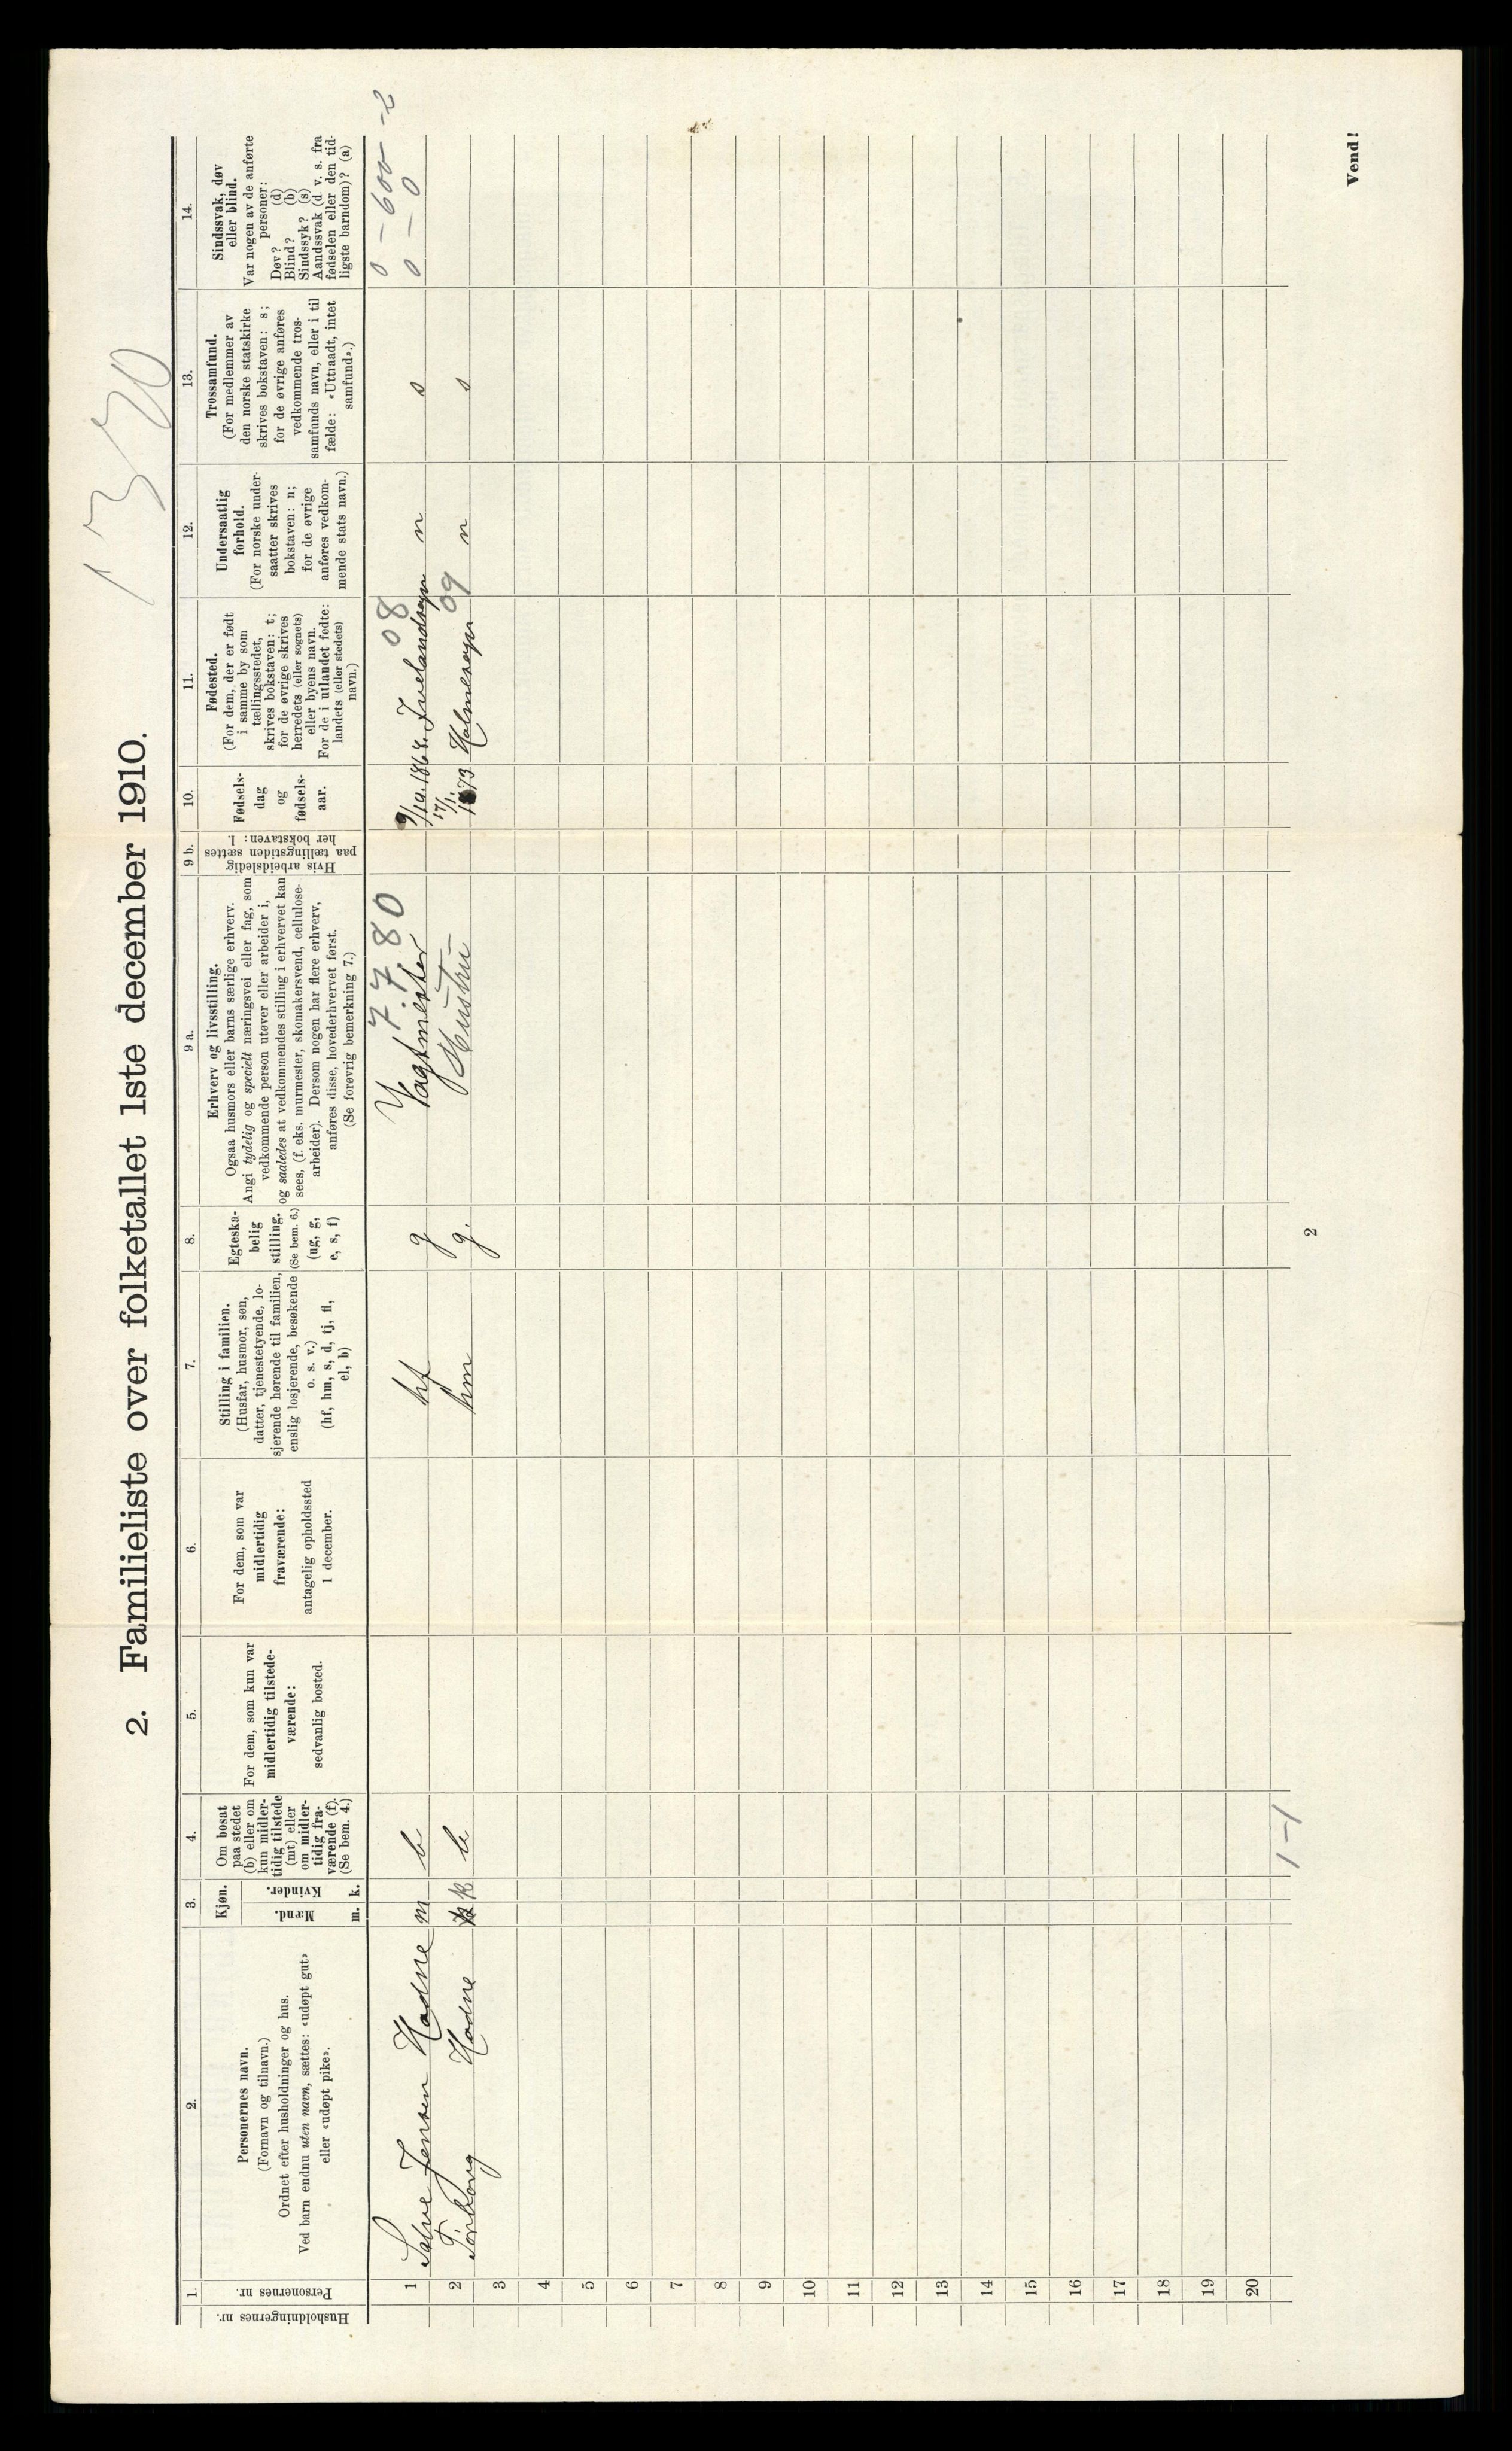 1320
2. Familieliste over folketallet 1ste december 1910.
Husholdningernes nr.
1.
Personernes nr.
2.
Personernes navn.
(Fornavn og tilnavn.)
Ordnet efter husholdninger og hus.
Ved barn endnu uten navn, sættes: «udøpt gut»
eller «udøpt pike».
3.
Kjøn.
Mænd.
Kvinder.
m. k.
4.
Om bosat
paa stedet
(b) eller om
kun midler-
tidig tilstede
(mt) eller
om midler-
tidig fra-
værende (f).
(Se bem. 4.)
5.
For dem, som kun var
midlertidig tilstede-
værende:
sedvanlig bosted.
6.
For dem, som var
midlertidig
fraværende:
antagelig opholdssted
1 december.
7.
Stilling i familien.
(Husfar, husmor, søn,
datter, tjenestetyende, lo-
sjerende hørende til familien,
enslig losjerende, besøkende
o. s. v.)
(hf, hm, s, d, tj, fl,
el, b)
8.
Egteska-
belig
stilling.
(Se bem. 6.)
(ug, g,
e, s, f)
9 a.
Erhverv og livsstilling.
Ogsaa husmors eller barns særlige erhverv.
Angi tydelig og specielt næringsvei eller fag, som
vedkommende person utøver eller arbeider i,
og saaledes at vedkommendes stilling i erhvervet kan
sees, (f. eks. murmester, skomakersvend, cellulose-
arbeider). Dersom nogen har flere erhverv,
anføres disse, hovederhvervet først.
(Se forøvrig bemerkning 7.)
9 b.
Hvis arbeidsledig
paa tællingstiden sættes
her bokstaven: l.
10.
Fødsels-
dag
og
fødsels-
aar.
11.
Fødested.
(For dem, der er født
i samme by som
tællingsstedet,
skrives bokstaven: t;
for de øvrige skrives
herredets (eller sognets)
eller byens navn.
For de i utlandet fødte:
landets (eller stedets)
navn.)
12.
Undersaatlig
forhold.
(For norske under-
saatter skrives
bokstaven: n;
for de øvrige
anføres vedkom-
mende stats navn.)
13.
Trossamfund.
(For medlemmer av
den norske statskirke
skrives bokstaven: s;
for de øvrige anføres
vedkommende tros-
samfunds navn, eller i til
fælde: «Uttraadt, intet
samfund».)
14.
Sindssvak, døv
eller blind.
Var nogen av de anførte
personer:
Døv? (d)
Blind? (b)
Sindssyk? (s)
Aandssvak (d v. s. fra
fødselen eller den tid-
ligste barndom)? (a)
7.7.80 08 0 – 600 – 2
1 Salve Jensen Hodne m b hf g Vagtmester 9/10. 1868. Ivelandsogn n s 0 – 0
2 Tonborg Hodne k b hm g. Hustru 17/1. 1873 Holmesogn 09 n s
3
4
5
6
7
8
9
10
11
12
13
14
15
16
17
18
19
20
1–1
2
Vend!